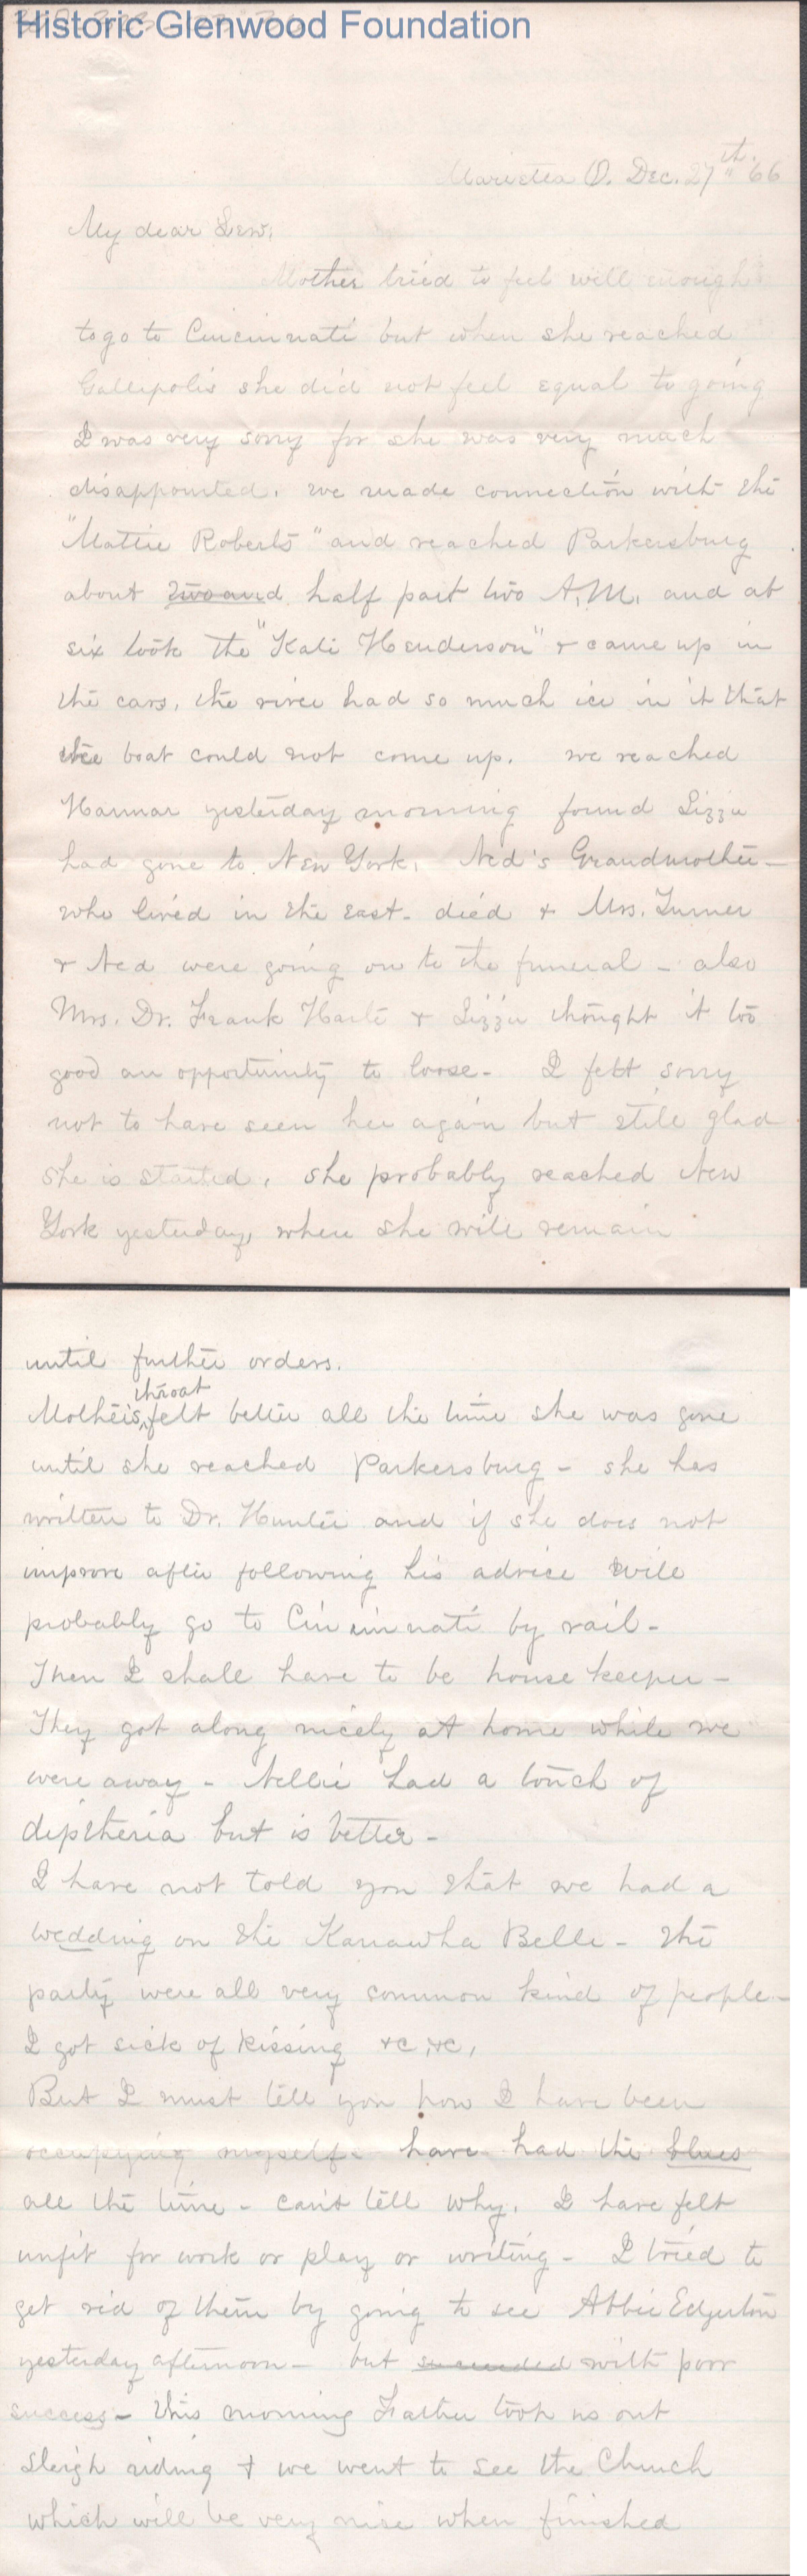 Historic Glenwood Foundation
Marietta O. Dec. 27th "66
My dear Lew,
Mother tried to feel well enough
to go to Cincinnati but when she reached
Gallipolis she did not feel equal to going
I was very sorry for she was very much
disappointed. we made connection with the
"Mattie Roberts" and reached Parkersburg
about two and half past two A.M. and at
six took the "Kate Henderson" & came up in
the cars, the river had so much ice in it that
the boat could not come up. we reached
Harmar yesterday morning found Lizzie
had gone to New York. Ned's Grandmother—
who lived in the east- died & Mrs. Turner
& Ned were going on to the funeral - also
Mrs. Dr. Frank Harte & Lizzie thought it too
good an opportunity to loose- I felt sorry
not to have seen her again but still glad
she is started, she probably reached New
York yesterday, where she will remain
until further orders.
throat
Mother's felt better all the time she was gone
until she reached Parkersburg - she has
written to Dr. Hunter and if she does not
improve after following his advice will
probably go to Cincinnati by rail-
Then I shall have to be house keeper-
They got along nicely at home while we
were away - Nellie had a touch of
diptheria but is better-
I have not told you that we had a
wedding on the Kanawha Belle - the
party were all very common kind of people-
I got sick of kissing &c &c,
But I must tell you how I have been
occupying myself- have had the blues
all the time - can't tell why. I have felt
unfit for work or play or writing - I tried to
get rid of them by going to see Abbie Edgerton
yesterday afternoon - but succeeded with poor
success - this morning Father took us out
sleigh riding & we went to see the Church
which will be very nice when finished